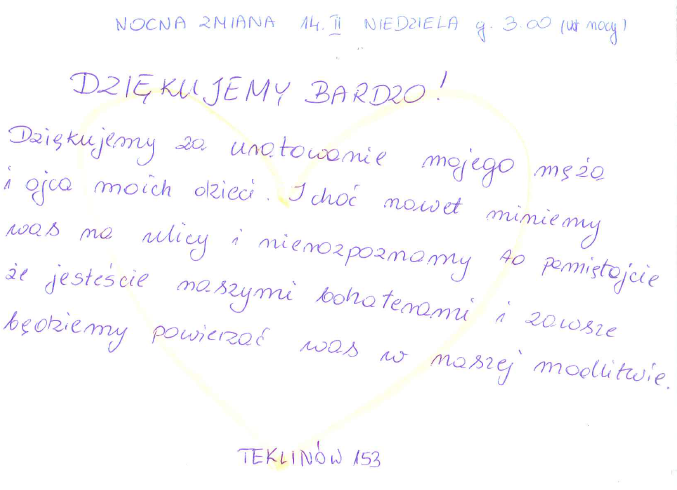 NOCNA ZMIANA 14. II NIEDZIELA g. 3.00 (w nocy)
DZIĘKUJEMY BARDZO!
Dziękujemy za uratowanie mojego męża
i ojca moich dzieci. I choć nawet miniemy
was na ulicy i nierozpoznamy to pamiętajcie
że jesteście naszymi bohaterami i zawsze
będziemy powierzać was w naszej modlitwie.
TEKLINÓW 153